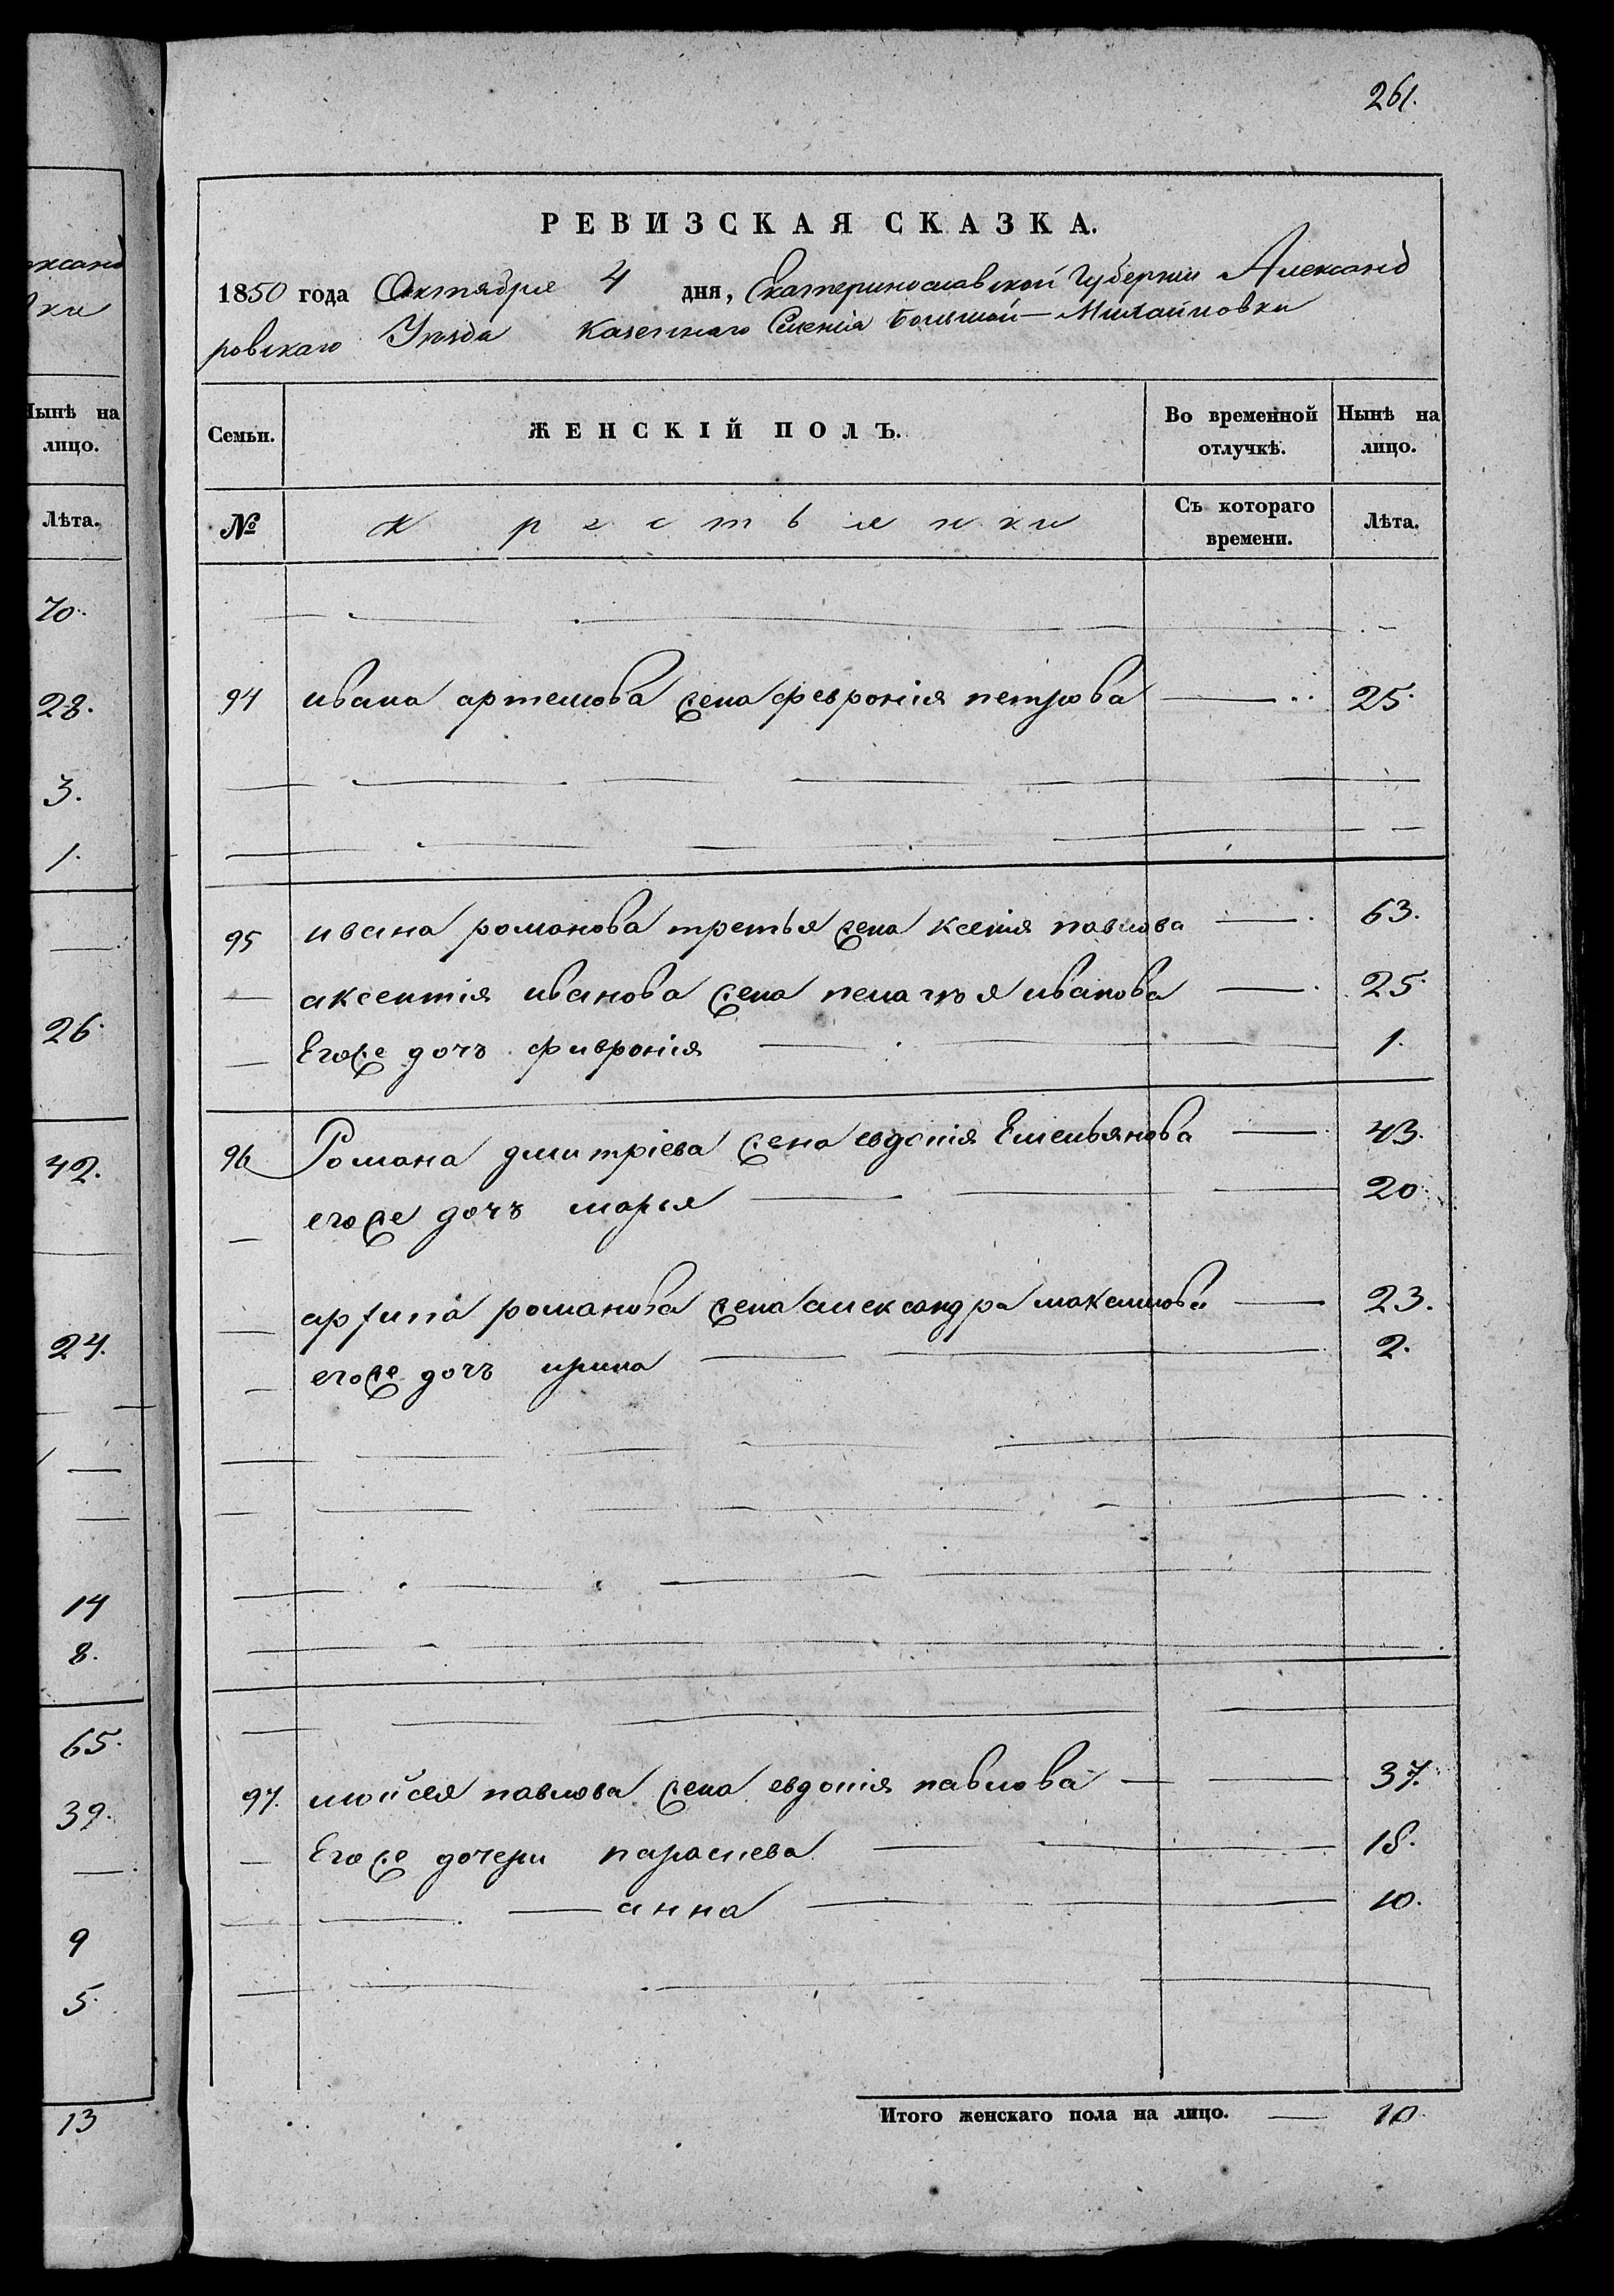 ександ
вки
Нынѣ на
лицо.
Лѣта.
70.
28.
3.
1.
26.
42.
24.
14
8.
65.
39.
9
5.
13
261.
РЕВИЗСКАЯ СКАЗКА.
1850 года Октября 4 дня, Екатеринославской Губерніи Александ
ровскаго Уѣзда Казеннаго Селенія Большой-Михайловки
Семьи. ЖЕНСКІЙ ПОЛЪ. Во временной отлучкѣ. Нынѣ на лицо.
№ Крестьянки Съ котораго времени. Лѣта.
94 ивана артемова жена феврония петрова 25.
95 ивана романова третья жена ксенія павлова 63.
аксентія иванова жена пелагѣя иванова 25.
Егоже дочь феврония 1.
96 Романа дмитріева жена евдокія Емельянова 43.
егоже дочь марья 20.
архипа романова жена александра максимова 23.
егоже дочь ирина 2.
97. мойсея павлова жена евдокія павлова 37.
Егоже дочери парасиева 18.
анна 10.
Итого женскаго пола на лицо. 10.